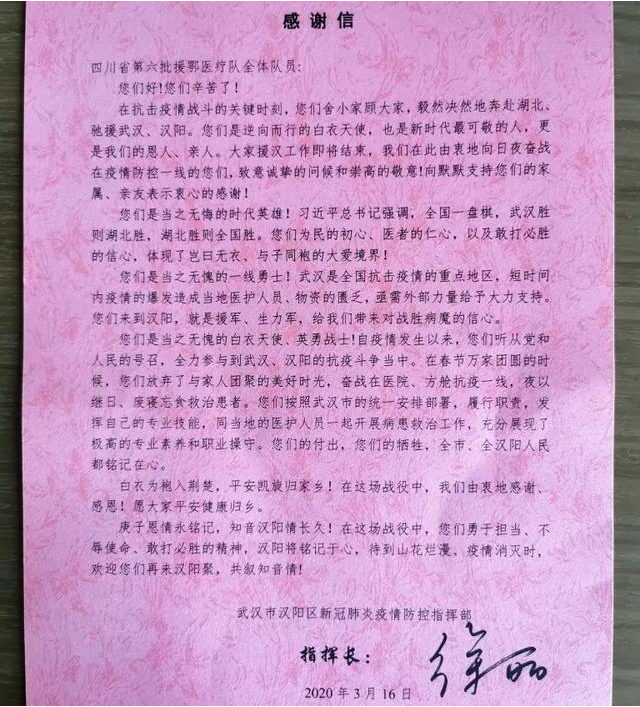 感谢信
四川省第六批援鄂医疗队全体队员：
您们好!您们辛苦了！
在抗击疫情战斗的关键时刻，您们舍小家顾大家，毅然决然地奔赴湖北、
驰援武汉、汉阳。您们是逆向而行的白衣天使，也是新时代最可敬的人，更
是我们的恩人、亲人。大家援汉工作即将结束，我们在此由衷地向日夜奋战
在疫情防控一线的您们，致意诚挚的问候和崇高的敬意!向默默支持您们的家
属、亲友表示衷心的感谢!
您们是当之无悔的时代英雄！习近平总书记强调，全国一盘棋，武汉胜
则湖北胜，湖北胜则全国胜。您们为民的初心、医者的仁心，以及敢打必胜
的信心，体现了岂曰无衣、与子同袍的大爱境界！
您们是当之无愧的一线勇士！武汉是全国抗击疫情的重点地区，短时间
内疫情的爆发造成当地医护人员、物资的匮乏，亟需外部力量给予大力支持。
您们来到汉阳，就是援军、生力军，给我们带来对战胜病魔的信心。
您们是当之无愧的白衣天使、英勇战士!自疫情发生以来，您们听从党和
人民的号召，全力参与到武汉、汉阳的抗疫斗争当中。在春节万家团圆的时
候，您们放弃了与家人团聚的美好时光，奋战在医院、方舱抗疫一线，夜以
继日、废寝忘食救治患者。您们按照武汉市的统一安排部署，履行职责，发
挥自己的专业技能，同当地的医护人员一起开展病患救治工作，充分展现了
极高的专业素养和职业操守。您们的付出，您们的牺牲，全市、全汉阳人民
都铭记在心。
白衣为袍入荆楚，平安凯旋归家乡！在这场战役中，我们由衷地感谢、
感恩！愿大家平安健康归乡。
庚子恩情永铭记，知音汉阳情长久！在这场战役中，您们勇于担当、不
辱使命、敢打必胜的精神，汉阳将铭记于心，待到山花烂漫、疫情消灭时，
欢迎您们再来汉阳聚，共叙知音情！
武汉市汉阳区新冠肺炎疫情防控指挥部
指挥长：
2020年3月16日